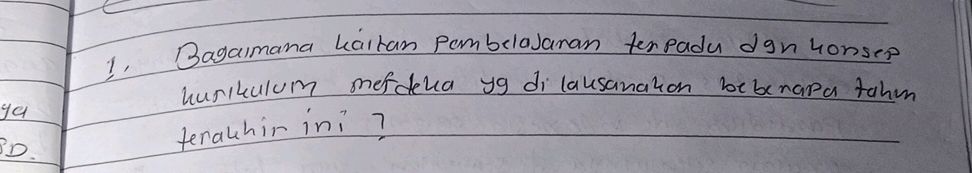 1. Bagaimana kaitan pembelajaran terpadu dgn konsep
kurikulum merdeka yg di laksanakan beberapa tahun
terakhir ini ?
ya
SD.